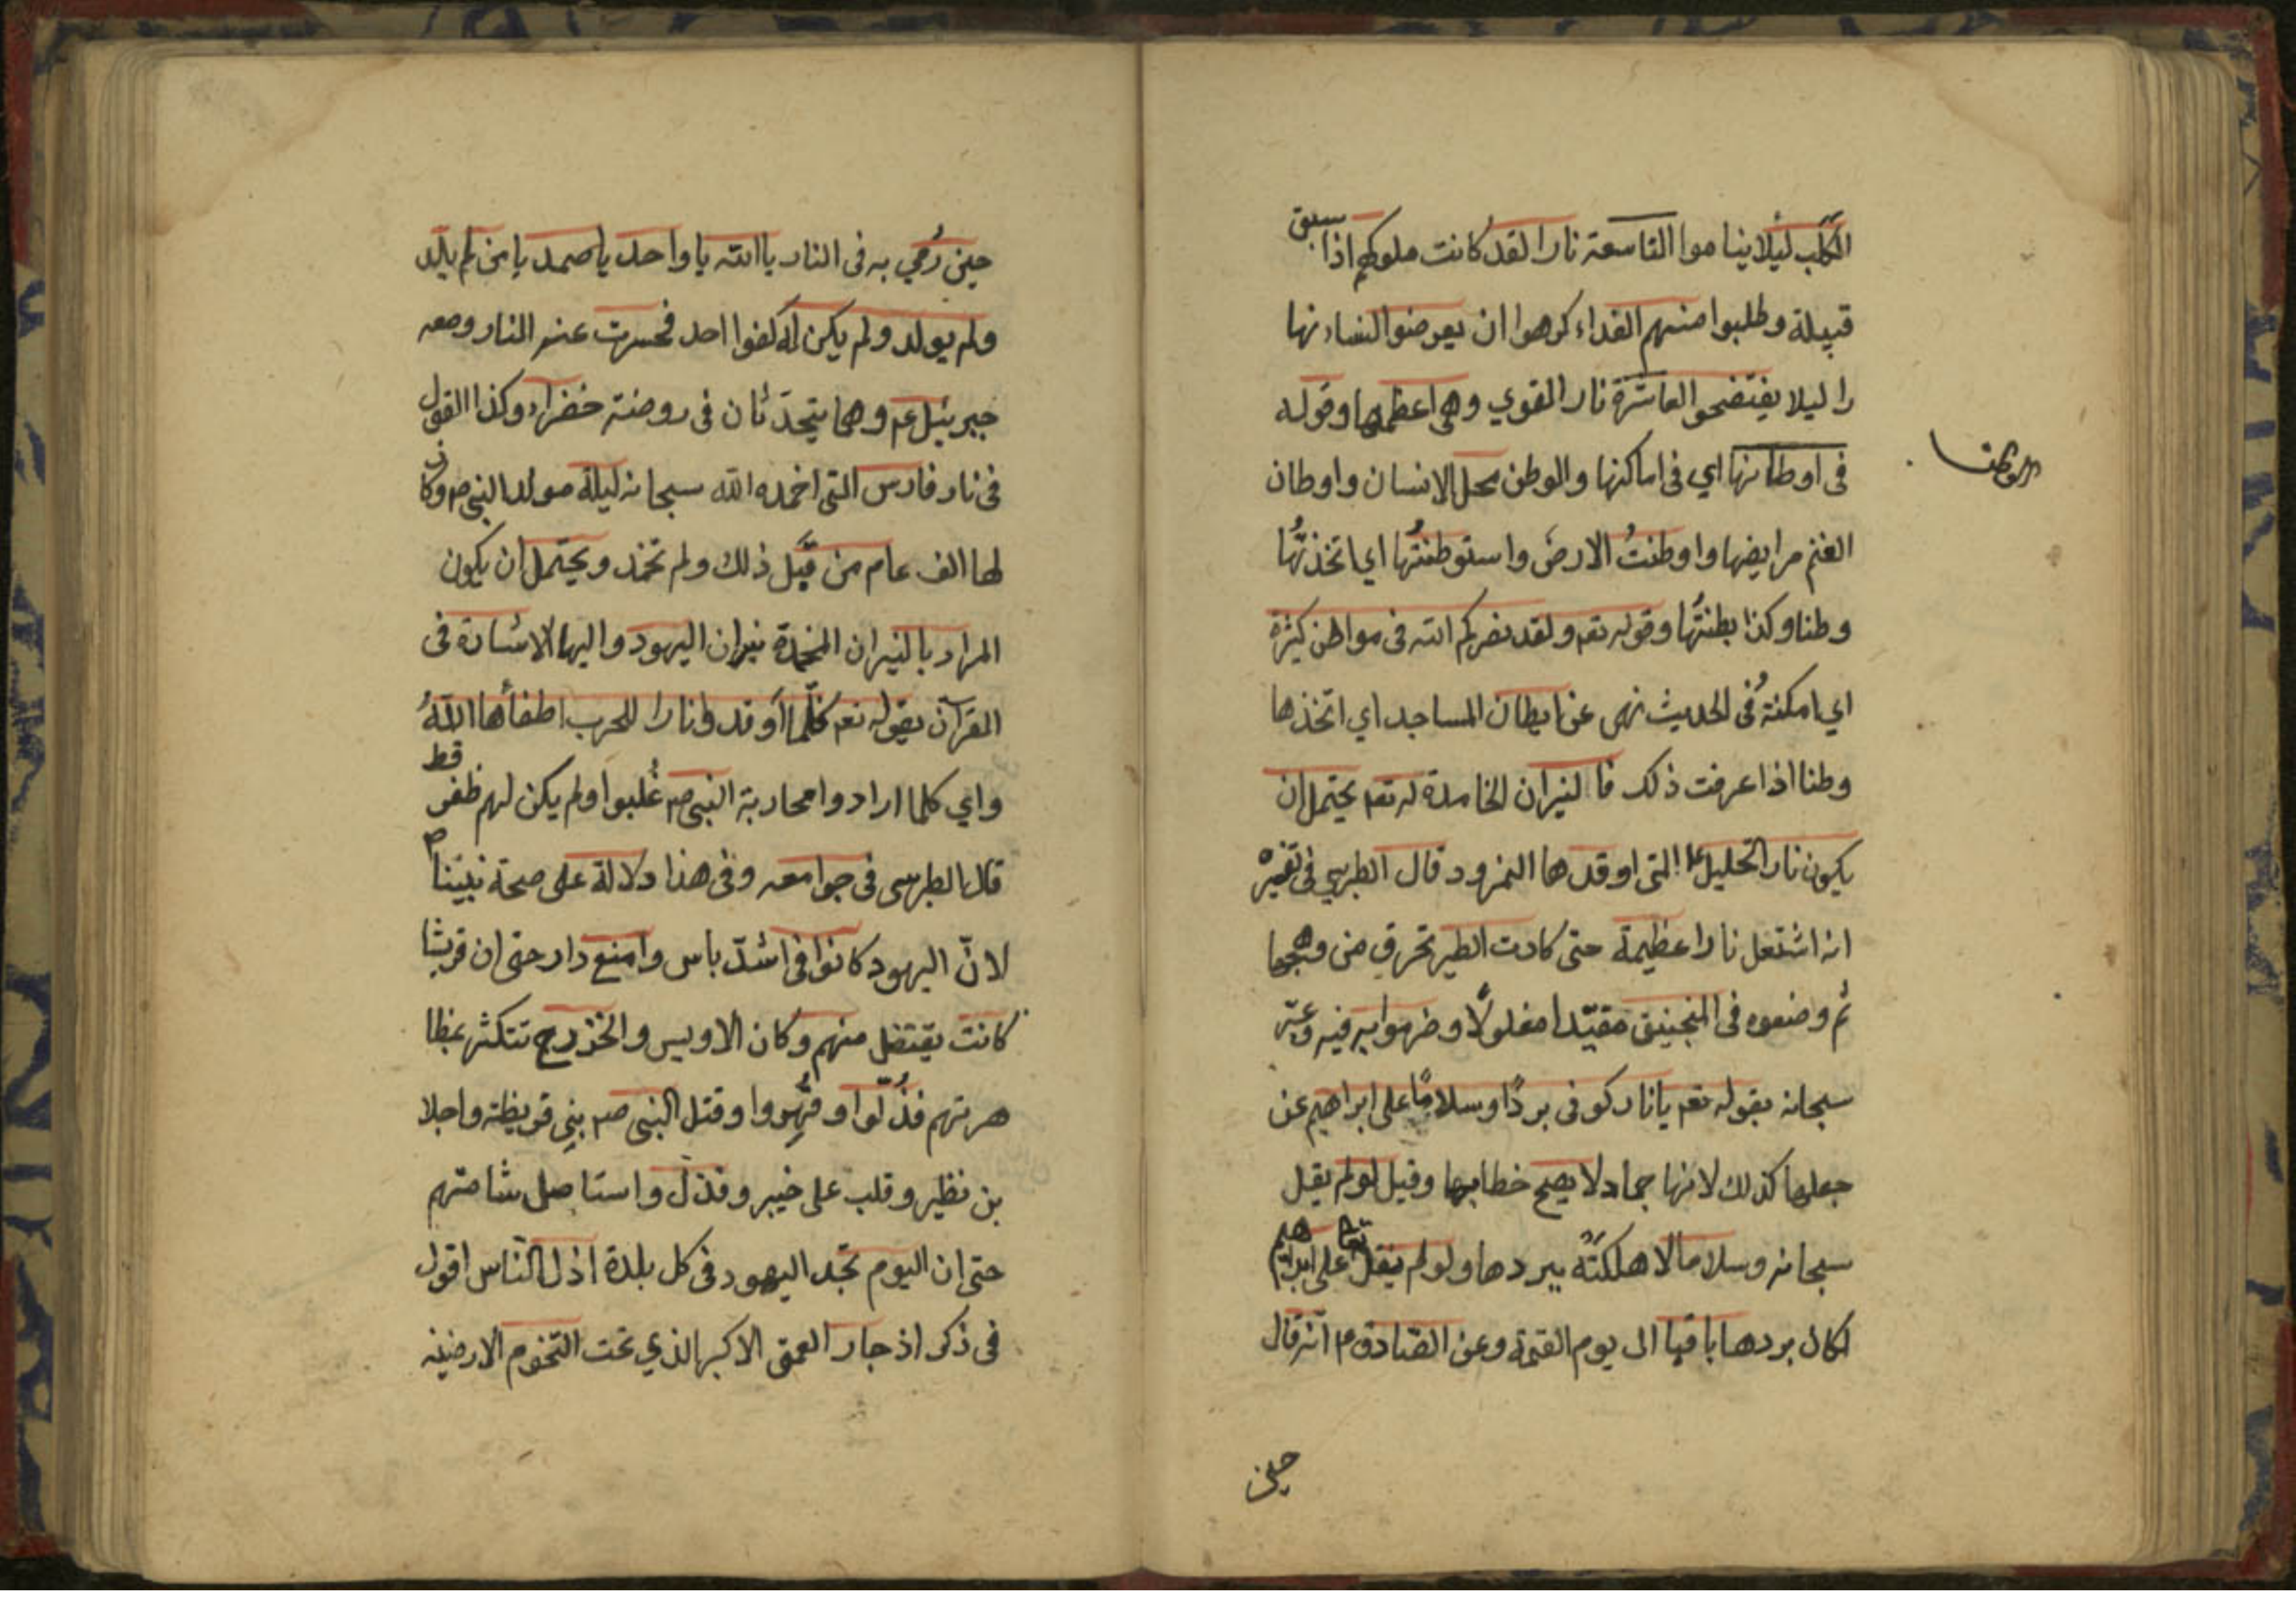 الكلب ليلا يناموا التاسعة نار الغدر كانت ملوكهم اذا سبق
قبيلة وطلبوا منهم الفداء كرهوا ان يعرضوا النساء نها
را ليلا يفتضحوا العاشرة نار القوي وهي اعظمها وقوله
في اوطانها اي في اماكنها والوطن محل الانسان واوطان
الغنم مرابضها واوطنتُ الارض واستوطنتُها اي اتخذتُها
وطنا وكذا بطنتُها وقوله تعم ولقد نصركم الله في مواطن كثيرة
اي امكنة وفي الحديث نهى عن ايطان المساجد اي اتخذها
وطنا اذا عرفت ذلك فالنيران الخامدة له تعم يحتمل ان
يكون نار الخليل ع التي اوقدها النمرود قال الطبرسي في تفسيره
انه اشتعل نارا عظيمة حتى كادت الطير تحرق من وهجها
ثم وضعوه في المنجنيق مقيّدا مغلولًا وضرموا به فيه وعبّر
سبحانه بقوله تعم يا نار كوني بردًا وسلامًا على ابراهيم عن
جعلها كذلك لانها جماد لا يصح خطابها وقيل لو لم يقل
سبحانه وسلاما لاهلكته ببردها ولو لم يقل تعا على ابراهيم
لكان بردها باقيا الى يوم القيمة وعن الصّادق م انّه قال
حين
حين رُمي به في النار يا الله يا واحد يا صمد يا من لم يلد
ولم يولد ولم يكن له كفوا احد فحسرت عنه النار ومعه
جبرئيل عم وهما يتحدّثان في روضة خضراء وكذا القول
في نار فارس التي اخمده الله سبحانه ليلة مولد النبي ص وكان
لها الف عام من قبل ذلك ولم تخمد ويحتمل ان يكون
المراد بالنيران المخمدة نيران اليهود واليها الاشارة في
القرآن بقوله تعم كلّما اوقدوا نارا للحرب اطفأها اللهُ
واي كلما ارادوا محاربة النبي ص غُلبوا ولم يكن لهم ظفر قط
قال الطبرسي في جوامعه وفي هذا دلالة على صحة نبيّنا ص
لانّ اليهود كانوا في اشدّ باس وامنع دار حتى ان قريشا
كانت يقتضل منهم وكان الاويس والخذرج تتكثر بمظا
هرتهم فذُلّوا وقُهِروا وقتل النبي ص بني قريظة واجلا
بن نظير وقلب على خيبر وفذل واستاصل شامتهم
حتى ان اليوم تجد اليهود في كل بلدة اذل النّاس اقول
في ذكر اذ جار العمق الاكبر الذي تحت التخوم الارضية